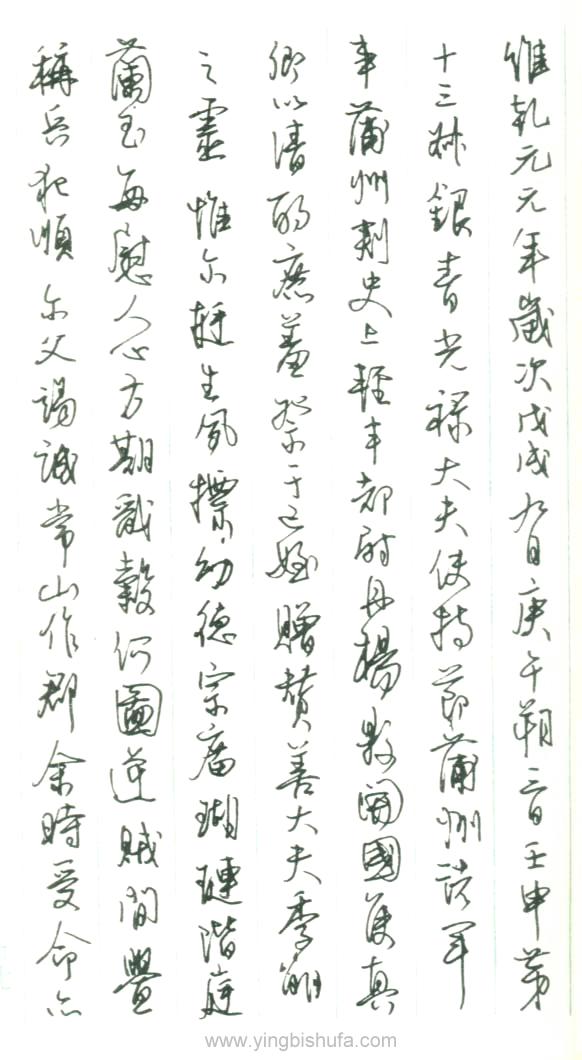 維乾元元年歲次戊戌九月庚午朔三日壬申第
十三叔銀青光祿大夫使持節蒲州諸軍
事蒲州刺史上輕車都尉丹楊縣開國侯真
卿以清酌庶羞祭于亡姪贈贊善大夫季明
之靈 惟尔挺生夙標幼德宗廟瑚璉階庭
蘭玉每慰人心方期戩穀何圖逆賊閒釁
稱兵犯順 尔父竭誠常山作郡余時受命亦
www.yingbishufa.com